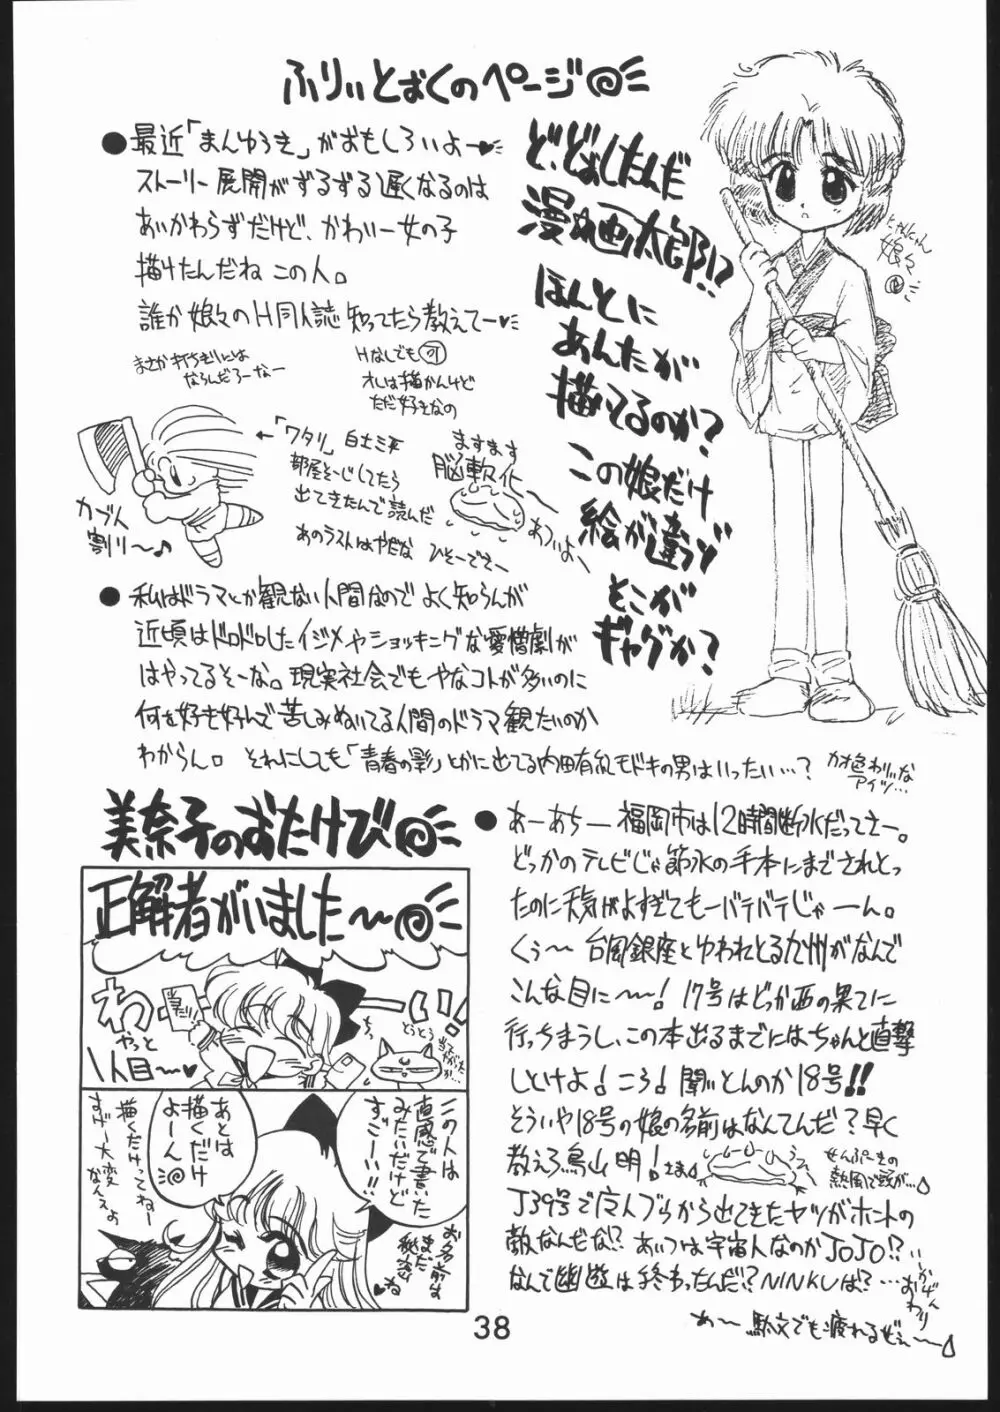 ふりぃとおくのページ
●最近「まんゆうき」がおもしろいよー
ストーリー展開がずるずる遅くなるのは
あいかわらずだけど、かわいー女の子
描けたんだねこの人。
誰か娘々のH同人誌知ってたら教えてー
まさか打ちきりには
ならんだろーなー
Hなしでも可
オレは描かんけど
ただ好きなの
ど、どおしたんだ
漫☆画太郎!?
ほんとに
あんたが
描いてるのか?
この娘だけ
絵が違うぞ
そこが
ギャグか?
にゃんにゃん
娘々
←「ワタリ」白土三平
部屋そーじしてたら
出てきたんで読んだ
あのラストはやだな
カブト
割り〜♪
ますます
脳軟化〜
あついよ〜
●私はドラマとか観ない人間なのでよく知らんが
近頃はドロドロしたイジメやショッキングな愛憎劇が
はやってるそーな。現実社会でもやなコトが多いのに
何を好き好んで苦しみぬいてる人間のドラマ観たいのか
わからん。それにしても「青春の影」とかに出てる内田有紀モドキの男はいったい…?
美奈子のおたけび
正解者がいました〜
わーい!
やっと
1人目〜
とうとう
この人は
直感で書いた
みたいだけど
すごーい!!
あとは
描くだけ
よーん
描くだけってねー
すげー大変
なんえよ
お名前は
まだ
秘密
●あーあちー 福岡市は12時間断水だってさー。
どっかのテレビじゃ節水の手本にまでされとっ
たのに天気がよすぎてもーバテバテじゃーん。
くぅ〜台風銀座とゆわれとる九州がなんで
こんな目に〜!17号はどっか西の果てに
行っちまうし、この本出るまでにはちゃんと直撃
しとけよ!ころ!聞いとんのか18号!!
そういや18号の娘の名前はなんてんだ?早く
教えろ鳥山明!さま
せんぷーきの
熱風で頭が…
J39号で魔人ブウから出てきたヤツがホントの
敵なんだな!?あいつは宇宙人なのかJOJO!?
なんで幽遊は終わったんだ!?NINKUは?…
いかげん
おわり
あ〜駄文でも疲れるぜぇ〜
38